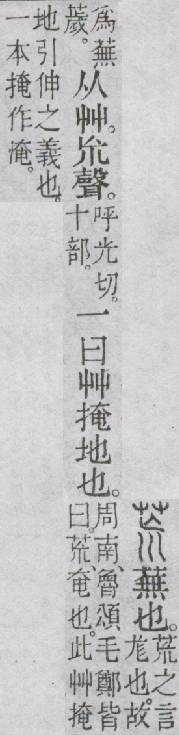 荒蕪也。荒之言
尨也。故
爲蕪
薉。从艸。巟聲。呼光切。
十部。一曰艸掩地也。周南、魯頌毛鄭皆
曰。荒、奄也。此艸掩
地引伸之義也。
一本掩作淹。